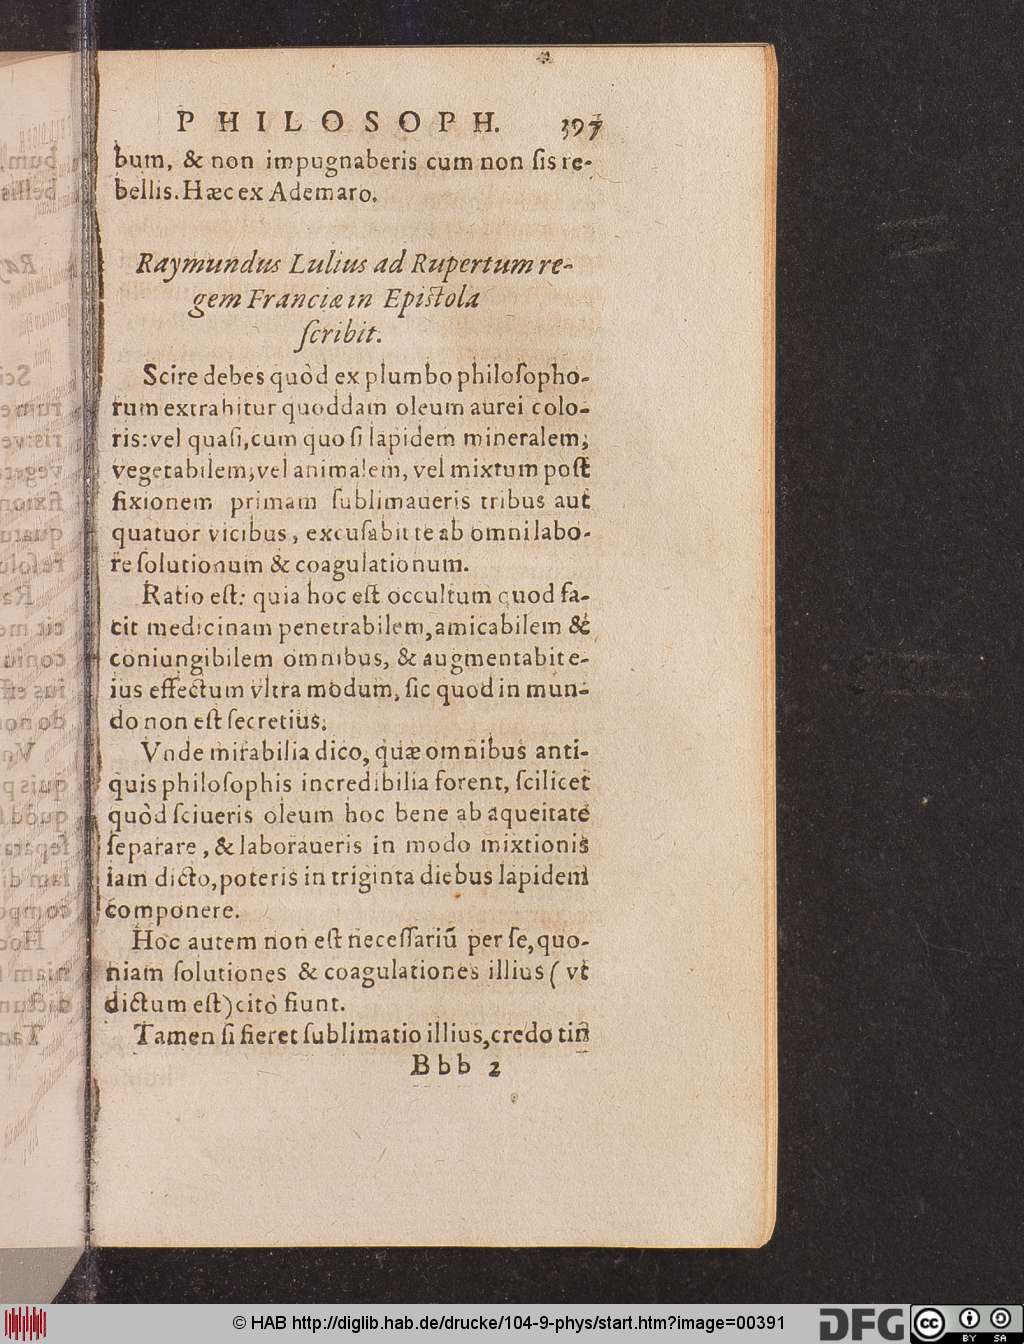 PHILOSOPH. 397
bum, & non impugnaberis cum non ſis re-
bellis. Hæc ex Ademaro.
Raymundus Lulius ad Rupertum re-
gem Franciæ in Epiſtola
ſcribit.
Scire debes quòd ex plumbo philoſopho-
rum extrahitur quoddam oleum aurei colo-
ris: vel quaſi, cum quo ſi lapidem mineralem,
vegetabilem, vel animalem, vel mixtum poſt
fixionem primam ſublimaueris tribus aut
quatuor vicibus, excuſabit te ab omni labo-
re ſolutionum & coagulationum.
Ratio eſt: quia hoc eſt occultum quod fa-
cit medicinam penetrabilem, amicabilem &
coniungibilem omnibus, & augmentabit e-
ius effectum vltra modum, ſic quod in mun-
do non eſt ſecretius.
Vnde mirabilia dico, quæ omnibus anti-
quis philoſophis incredibilia forent, ſcilicet
quòd ſciueris oleum hoc bene ab aqueitate
ſeparare, & laboraueris in modo mixtionis
iam dicto, poteris in triginta diebus lapidem
componere.
Hoc autem non eſt neceſſariũ per ſe, quo-
niam ſolutiones & coagulationes illius (vt
dictum eſt) citò fiunt.
Tamen ſi fieret ſublimatio illius, credo tin
Bbb 2
© HAB http://diglib.hab.de/drucke/104-9-phys/start.htm?image=00391
DFG
cc BY SA